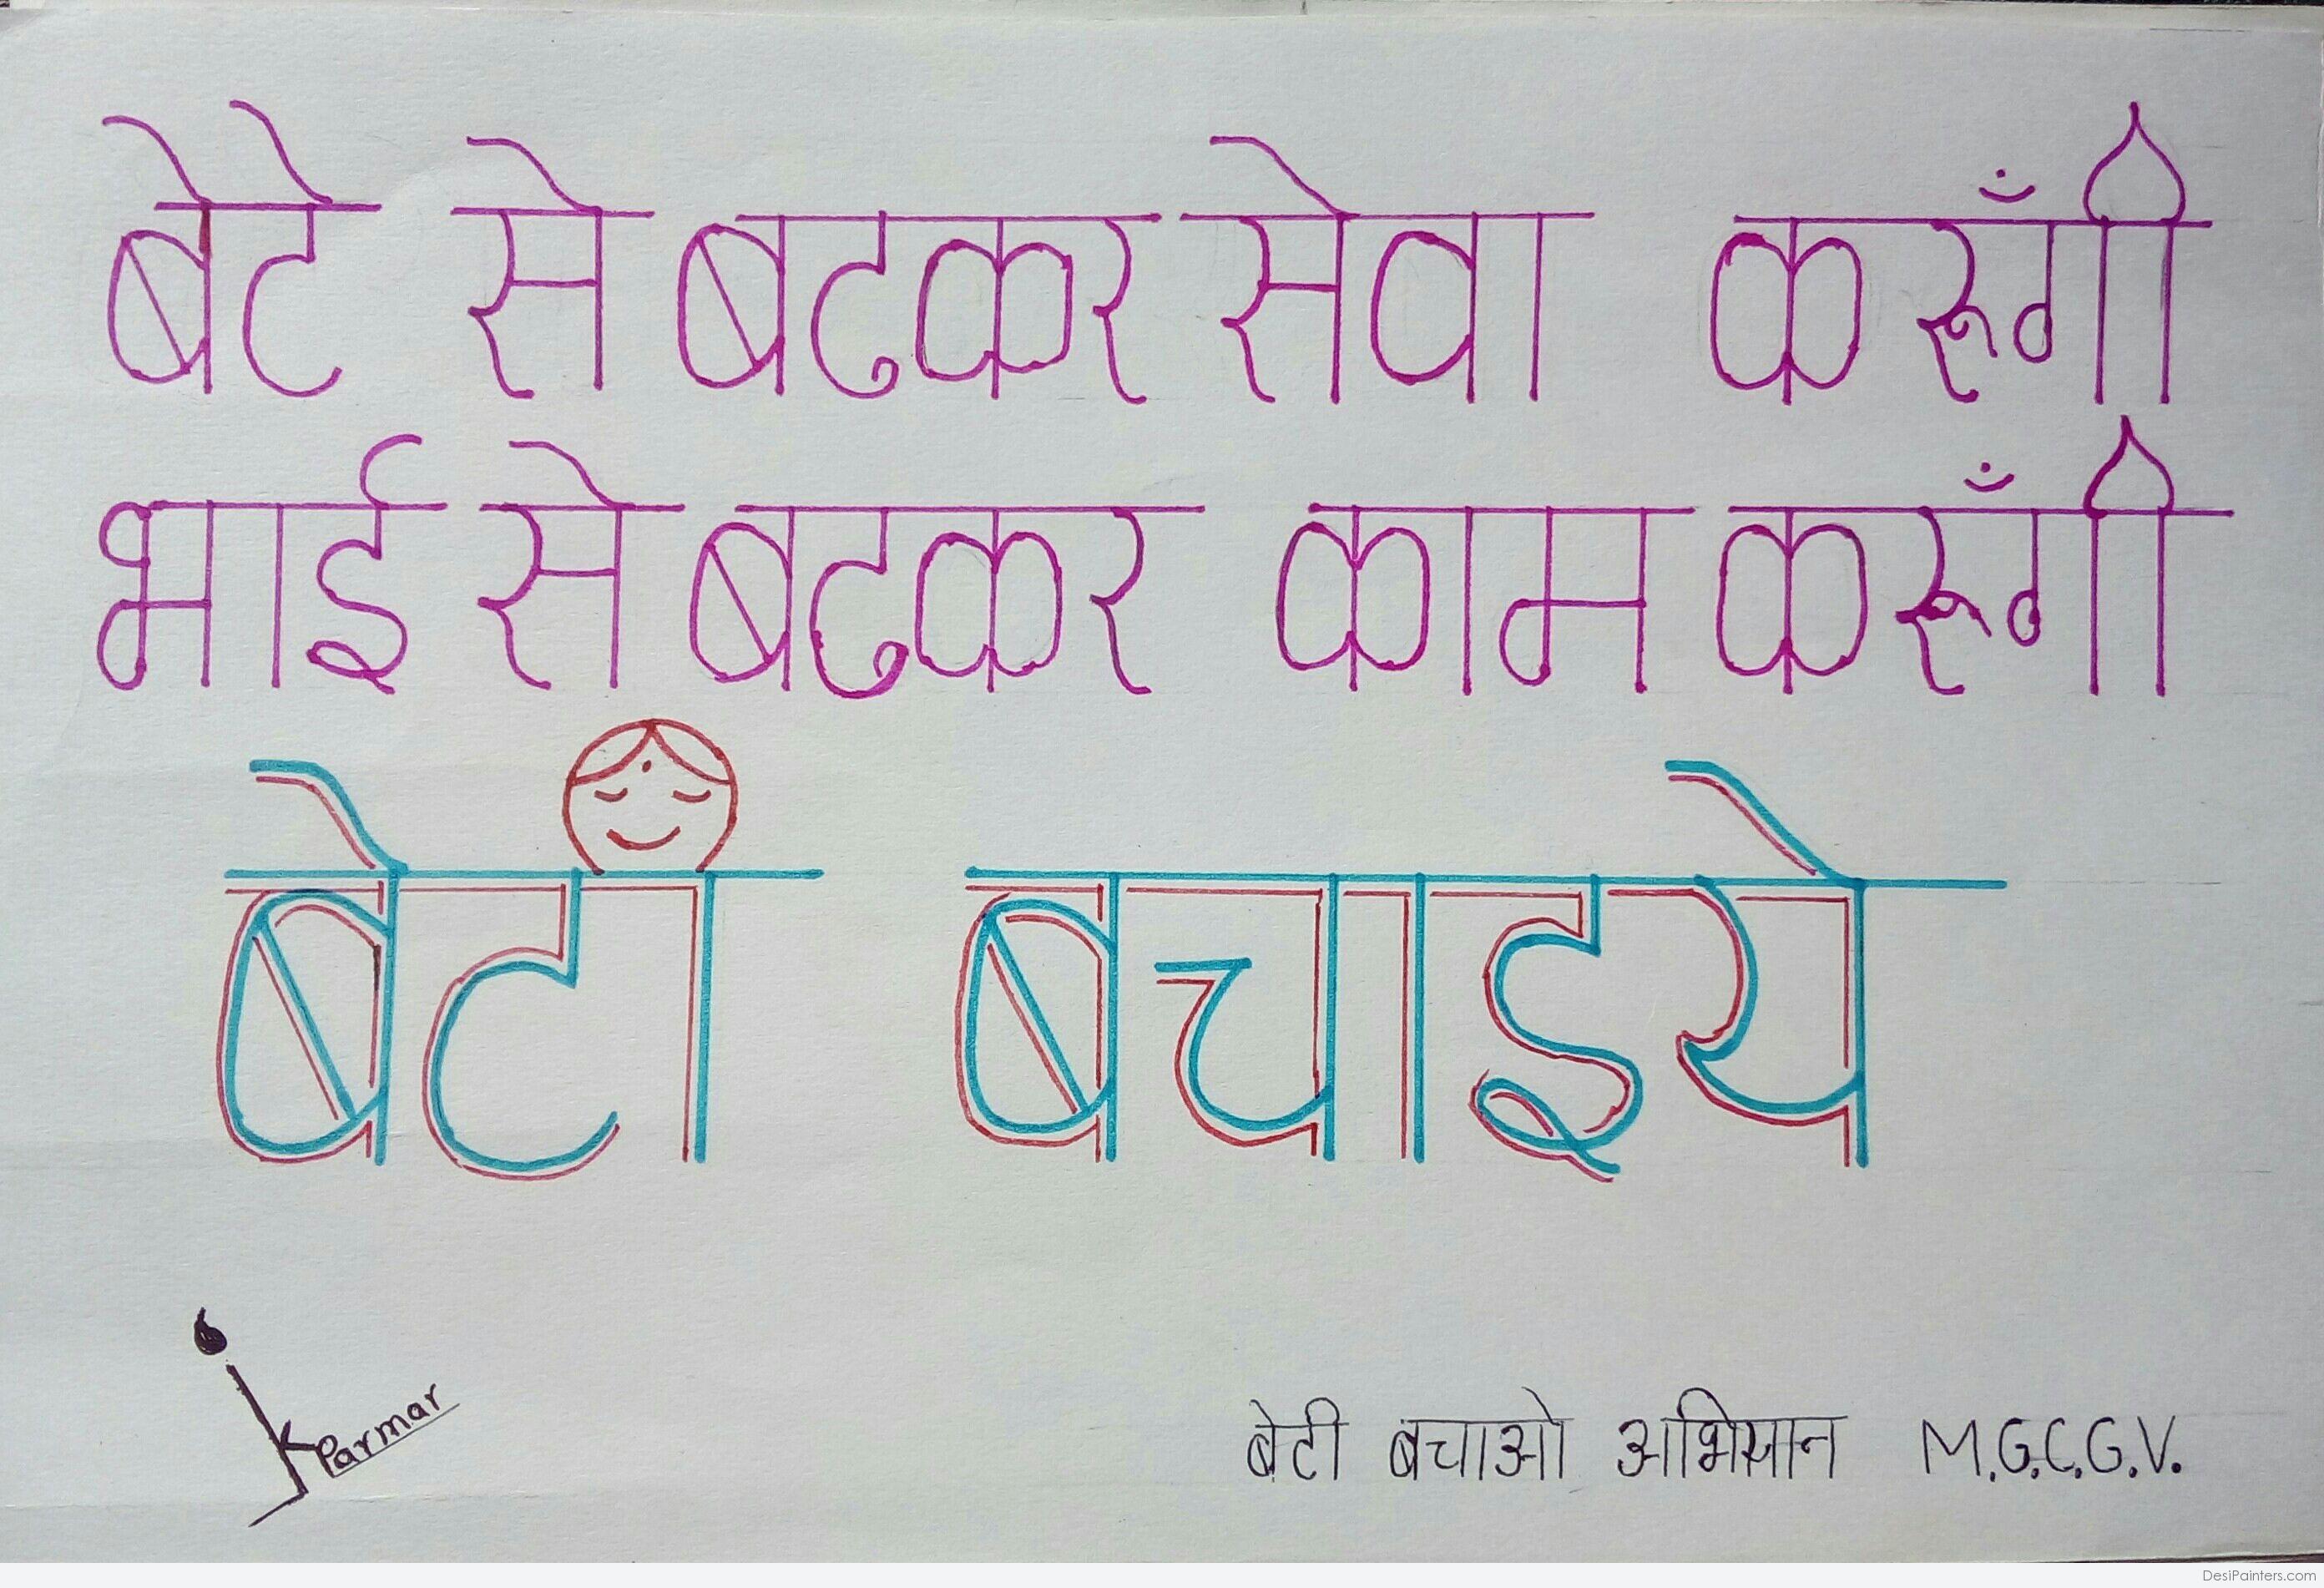 बेटे से बढकर सेवा करूँगी
भाई से बढकर काम करूँगी
बेटी बचाइये
JK Parmar
बेटी बचाओ अभियान M.G.C.G.V.
DesiPainters.com